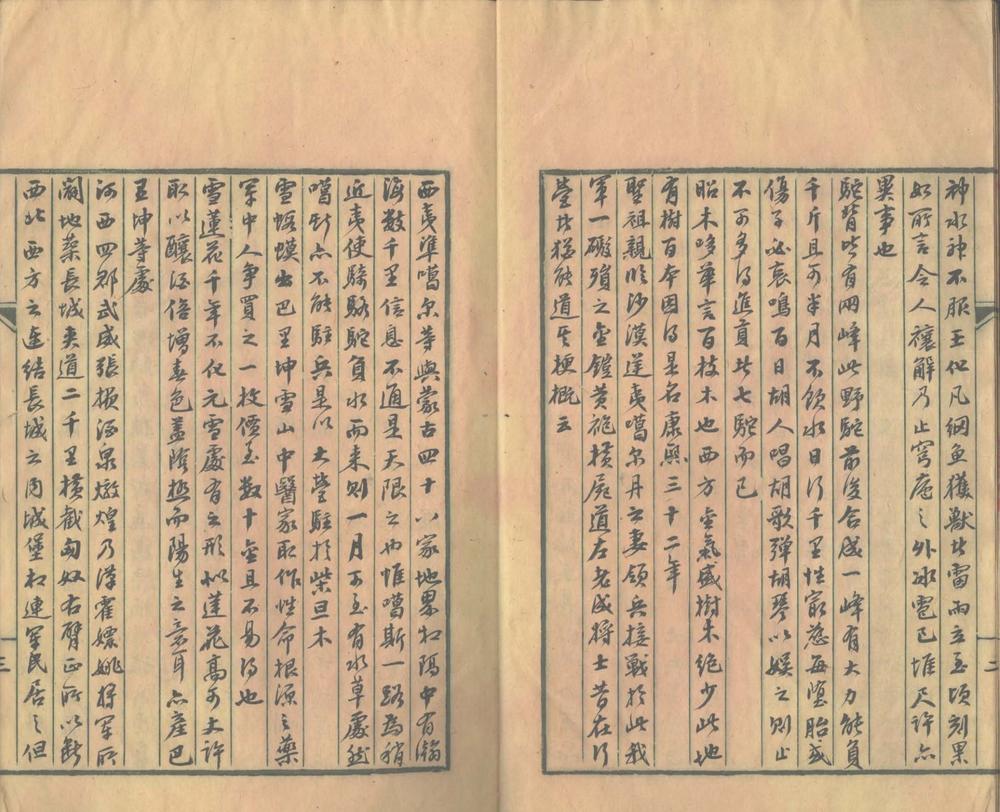 神水神不服王化凡網魚獲獸者雷雨立至頃刻果
如所言令人禳解乃止穹廬之外冰雹已堆尺許亦
異事也
駝背皆有兩峰此野駝前後合成一峰有大力能負
千斤且可半月不飲水日行千里性最慈每墮胎或
傷子必哀鳴百日胡人唱胡歌彈胡琴以娛之則止
不可多得進貢者七駝而已
昭木多華言百枝木也西方金氣盛樹木絕少此地
有樹百本因得是名康熙三十二年
聖祖親臨沙漠逆夷噶尔丹之妻領兵接戰於此我
軍一礮殞之金鎧黃袍橫屍道左老成將士昔在行
營者猶能道其梗概云
西夷準噶尔等與蒙古四十八家地界相隔中有瀚
海數千里信息不通是天限之也惟噶斯一路為稍
近夷使騎駱駝負水而来則一月可至有水草處然
噶斯亦不能駐兵是以大營駐於柴旦木
雪蝦蟆出巴里坤雪山中醫家取作性命根源之藥
軍中人爭買之一枚價至数十金且不易得也
雪蓮花千年不化元雪處有之形似蓮花高可丈許
取以釀酒倍增春色蓋陰極而陽生之意耳亦產巴
里坤等處
河西四郡武威張掖酒泉燉煌乃漢霍嫖姚將軍所
闢地築長城夾道二千里橫截匈奴右臂正所以斷
西北西方之連結長城之內城堡相連軍民居之但
二
三